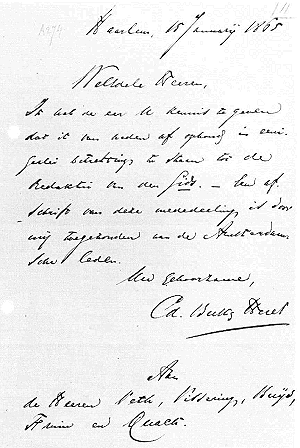 Haarlem, 15 Januarij 1865
Weledele Heeren,
Ik heb de eer U kennis te geven
dat ik van heden af ophoud in eeni-
gerlei betrekking te staan tot de
Redaktie van den Gids. – Een af-
schrift van deze mededeeling is door
mij toegezonden aan de Amsterdam-
sche leden.
Uw gehoorzame,
Cd. Busken Huet
Aan
de Heeren Veth, Vissering, Buijs,
Fruin en Quack.